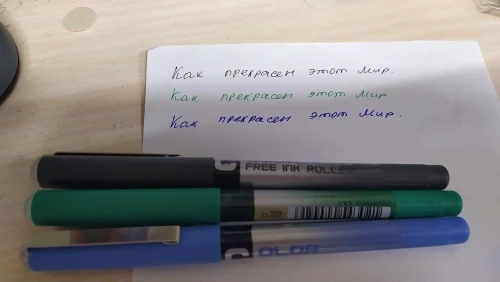 Как прекрасен этот Мир.
Как прекрасен этот Мир
Как прекрасен этот Мир.
FREE INK ROLLER
OLOR